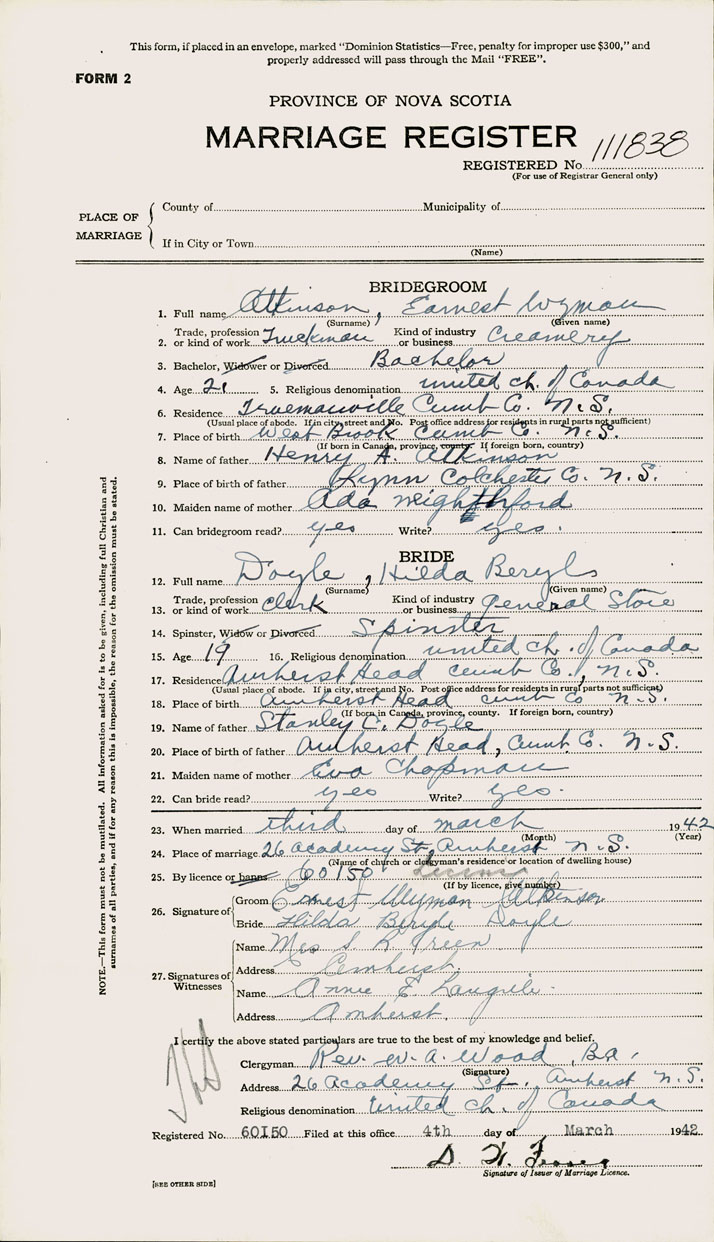 This form, if placed in an envelope, marked "Dominion Statistics—Free, penalty for improper use $300," and
properly addressed will pass through the Mail "FREE".
FORM 2
PROVINCE OF NOVA SCOTIA
MARRIAGE REGISTER
REGISTERED No. 111838
(For use of Registrar General only)
PLACE OF MARRIAGE
County of Municipality of
If in City or Town
(Name)
BRIDEGROOM
1. Full name Atkinson, Earnest Wyman
(Surname) (Given name)
2. Trade, profession or kind of work Truckman Kind of industry or business Creamery
3. Bachelor, Widower or Divorced Bachelor
4. Age 21 5. Religious denomination united ch. of Canada
6. Residence Truemanville Cumb Co. N.S.
(Usual place of abode. If in city, street and No. Post office address for residents in rural parts not sufficient)
7. Place of birth West Brook Cumb Co. N.S.
(If born in Canada, province, county. If foreign born, country)
8. Name of father Henry A. Atkinson
9. Place of birth of father Lynn Colchester Co. N.S.
10. Maiden name of mother Ada
11. Can bridegroom read? yes Write? yes.
BRIDE
12. Full name Doyle, Hilda
(Surname) (Given name)
13. Trade, profession or kind of work Clerk Kind of industry or business General Store
14. Spinster, Widow or Divorced Spinster
15. Age 19 16. Religious denomination united ch. of Canada
17. Residence Amherst Head cumb Co., N.S.
(Usual place of abode. If in city, street and No. Post office address for residents in rural parts not sufficient)
18. Place of birth Amherst Head cumb Co N.S.
(If born in Canada, province, county. If foreign born, country)
19. Name of father Stanley C. Doyle
20. Place of birth of father Amherst Head, Cumb Co. N.S.
21. Maiden name of mother Eva Chapman
22. Can bride read? yes Write? yes.
23. When married third day of march 1942
(Month) (Year)
24. Place of marriage 26 Academy St, Amherst N.S.
(Name of church or clergyman's residence or location of dwelling house)
25. By licence or banns 60150 License
(If by licence, give number)
26. Signature of
Groom Ernest Wyman Atkinson
Bride Hilda Doyle
27. Signatures of Witnesses
Name Mrs S. K. Treen
Address Amherst.
Name Annie E.
Address Amherst.
I certify the above stated particulars are true to the best of my knowledge and belief.
Clergyman Rev. W. A. Wood, BA,
(Signature)
Address 26 Academy St., Amherst N.S.
Religious denomination United ch. of Canada
Registered No. 60150 Filed at this office 4th day of March 1942
D.
Signature of Issuer of Marriage Licence.
[SEE OTHER SIDE]
NOTE.—This form must not be mutilated. All information asked for is to be given, including full Christian and
surnames of all parties, and if for any reason this is impossible, the reason for the omission must be stated.